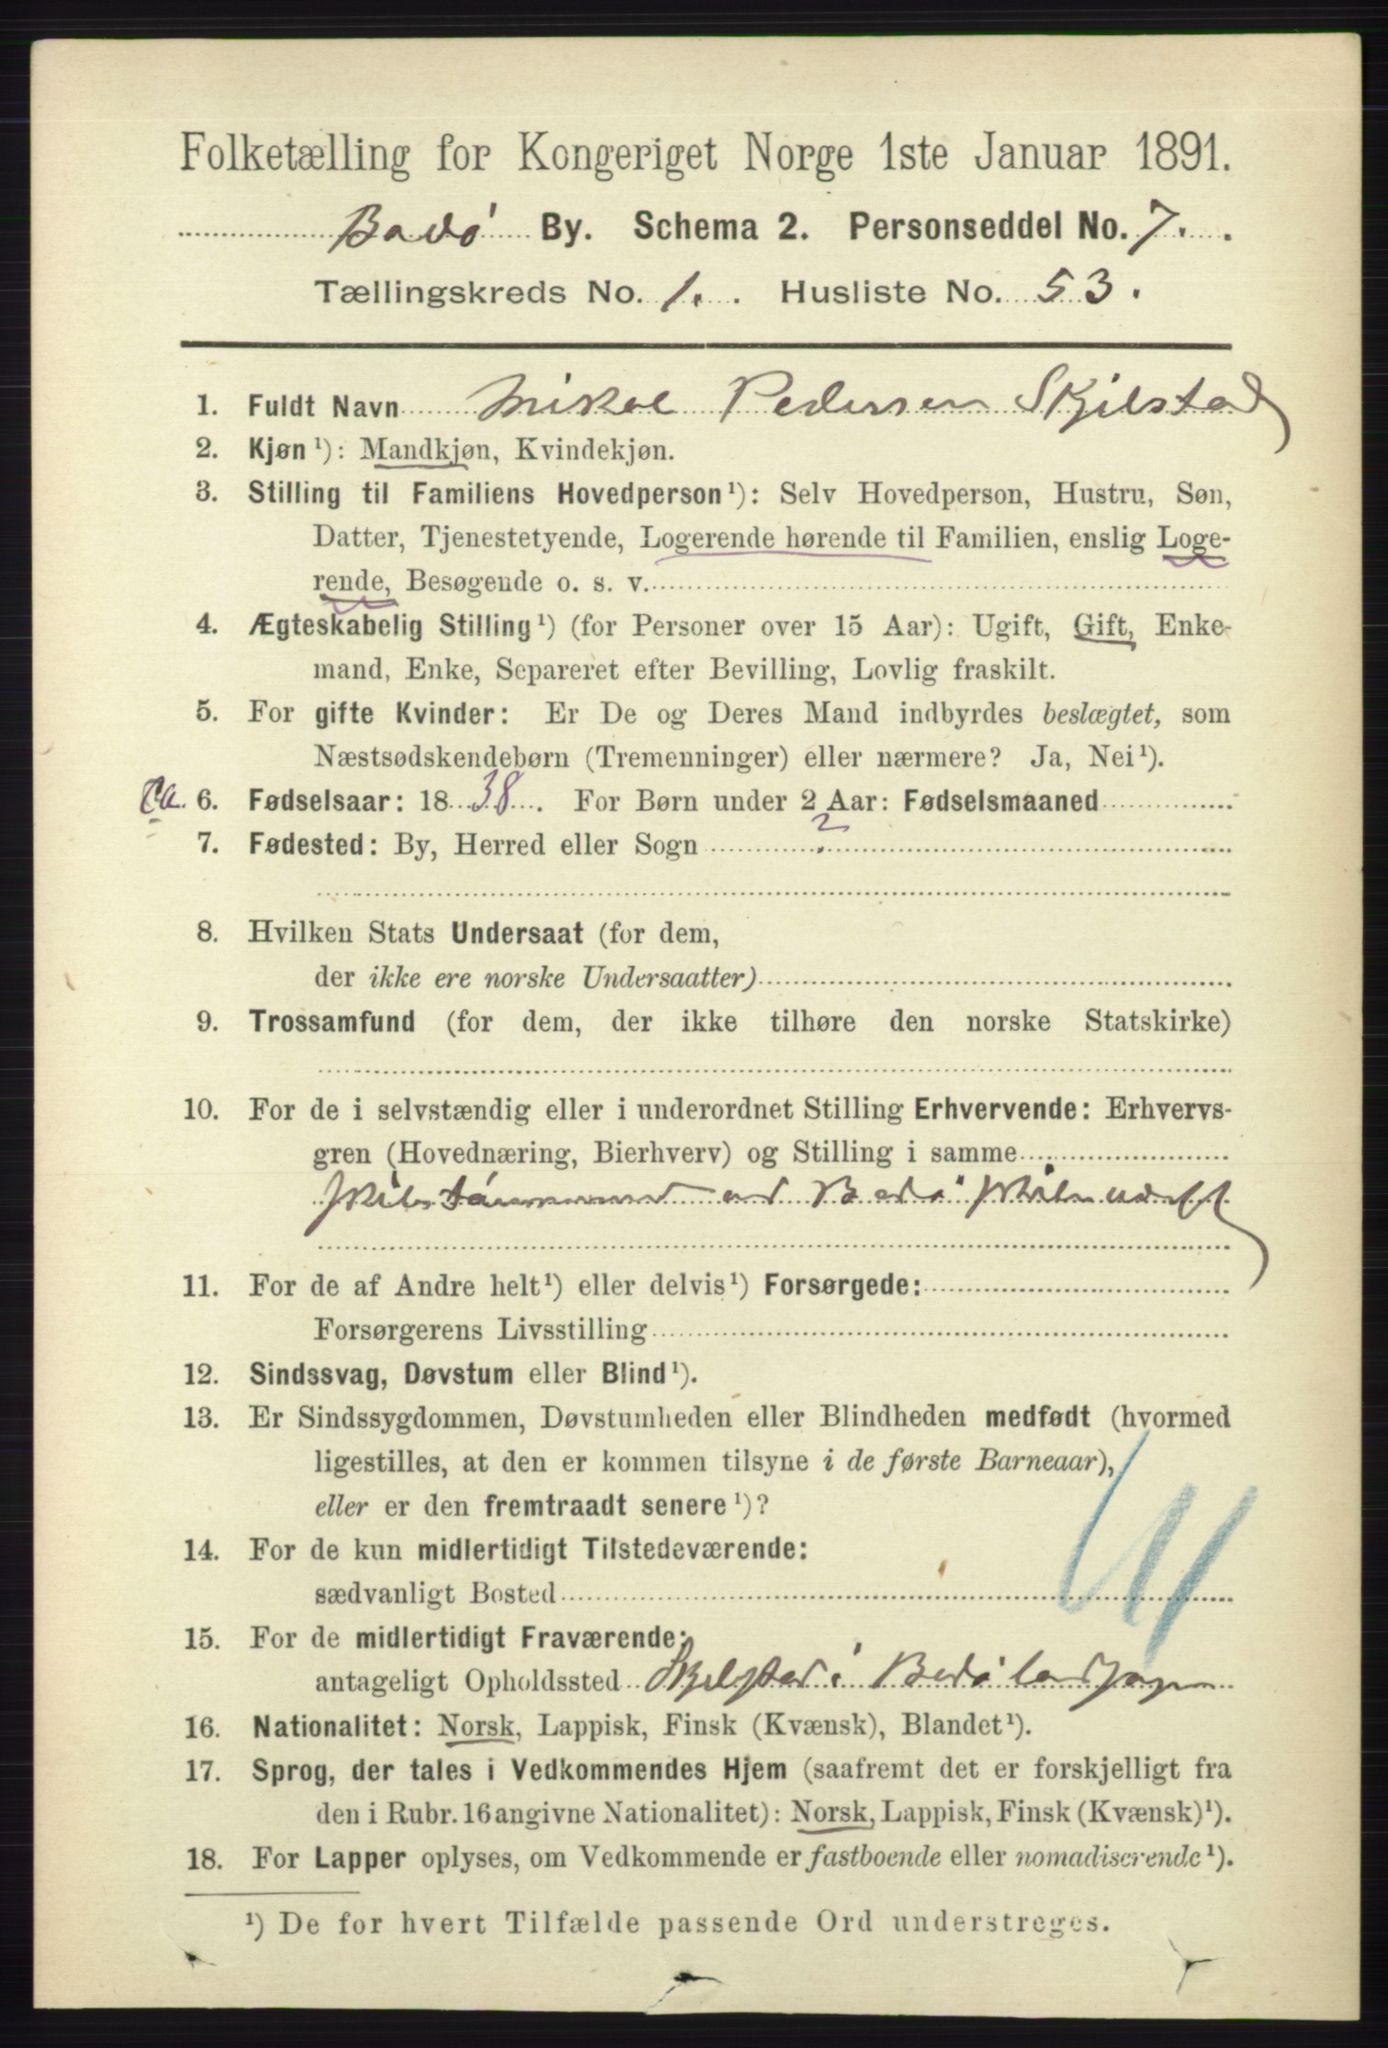 Folketælling for Kongeriget Norge 1ste Januar 1891.
Bodø By. Schema 2. Personseddel No. 7.
Tællingskreds No. 1. Husliste No. 53.
1. Fuldt Navn Mikal Pedersen Skjelstad
2. Kjøn ¹): Mandkjøn, Kvindekjøn.
3. Stilling til Familiens Hovedperson ¹): Selv Hovedperson, Hustru, Søn,
Datter, Tjenestetyende, Logerende hørende til Familien, enslig Loge-
rende, Besøgende o. s. v.
4. Ægteskabelig Stilling ¹) (for Personer over 15 Aar): Ugift, Gift, Enke-
mand, Enke, Separeret efter Bevilling, Lovlig fraskilt.
5. For gifte Kvinder: Er De og Deres Mand indbyrdes beslægtet, som
Næstsødskendebørn (Tremenninger) eller nærmere? Ja, Nei ¹).
Ca. 6. Fødselsaar: 18 38. For Børn under 2 Aar: Fødselsmaaned
7. Fødested: By, Herred eller Sogn ?
8. Hvilken Stats Undersaat (for dem,
der ikke ere norske Undersaatter)
9. Trossamfund (for dem, der ikke tilhøre den norske Statskirke)
10. For de i selvstændig eller i underordnet Stilling Erhvervende: Erhvervs-
gren (Hovednæring, Bierhverv) og Stilling i samme
ved Bodø
11. For de af Andre helt ¹) eller delvis ¹) Forsørgede:
Forsørgerens Livsstilling
12. Sindssvag, Døvstum eller Blind ¹).
13. Er Sindssygdommen, Døvstumheden eller Blindheden medfødt (hvormed
ligestilles, at den er kommen tilsyne i de første Barneaar),
eller er den fremtraadt senere ¹)?
14. For de kun midlertidigt Tilstedeværende:
sædvanligt Bosted
15. For de midlertidigt Fraværende:
antageligt Opholdssted Skjelstad i Bodø
16. Nationalitet: Norsk, Lappisk, Finsk (Kvænsk), Blandet ¹).
17. Sprog, der tales i Vedkommendes Hjem (saafremt det er forskjelligt fra
den i Rubr. 16 angivne Nationalitet): Norsk, Lappisk, Finsk (Kvænsk) ¹).
18. For Lapper oplyses, om Vedkommende er fastboende eller nomadiserende ¹).
¹) De for hvert Tilfælde passende Ord understreges.